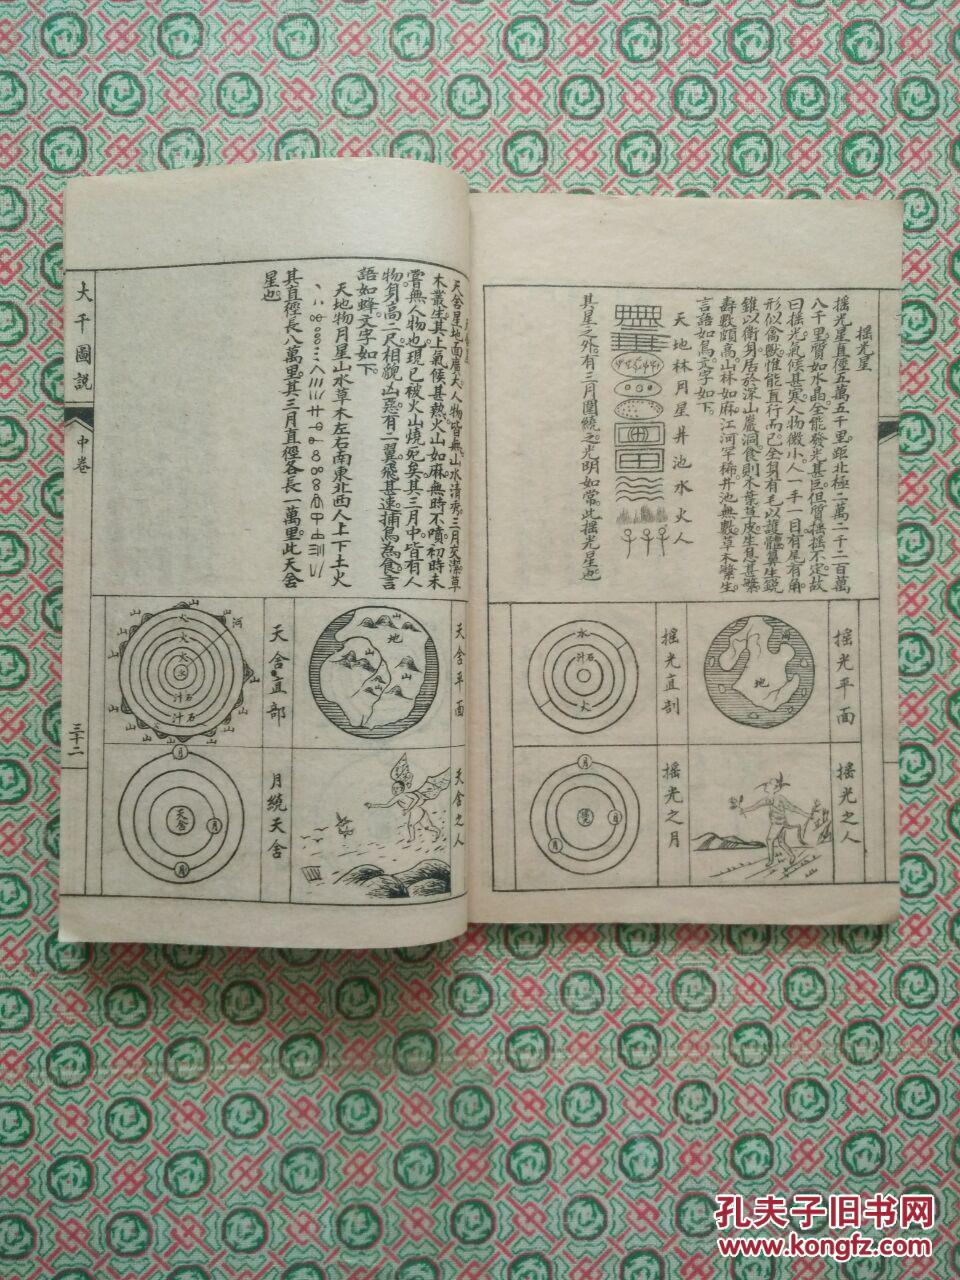 搖光星
搖光星直徑五萬五千里。距北極二萬二千二百萬
八千里。質如水晶。全能發光甚巨。但質搖搖不定。故
曰搖光。氣候甚寒。人物微小。人一手一目。有尾有角。
形似禽獸。惟能直行而已。全身有毛以護體。鼻生銳
錐以衛身。居於深山巖洞。食則木葉草皮。生息甚繁。
壽數頗高。山林如麻。江河罕稀。井池無數。草木繁生。
言語如鳥。文字如下
天地林月星井池水火人
其星之外。有三月圍繞之。光明如常。此搖光星也。
搖光平面
地
搖光直剖
水
石
汁
火
搖光之人
搖光之月
月
月
月
天舍星地面廣大。人物皆無。山水清秀。三月交潔。草
木叢生。其上氣候甚熱。火山如麻。無時不噴。初時未
嘗無人物也。現已被火山燒死矣。其三月中。皆有人
物。身高二尺。相貌凶惡。有二翼。飛甚速。捕鳥為食。言
語如蜂。文字如下。
天地物月星山水草木左右南東北西人上下土火
其直徑長八萬里。其三月直徑各長一萬里。此天舍
星也。
天舍平面
地
山
山
山
天舍直部
河
火
火
火
水
石
汁
石
汁
天舍之人
月繞天舍
月
天舍
月
月
大千圖說
中卷
三十二
孔夫子旧书网
www.kongfz.com